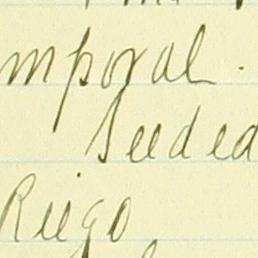 mporal.
Seeded
Riego